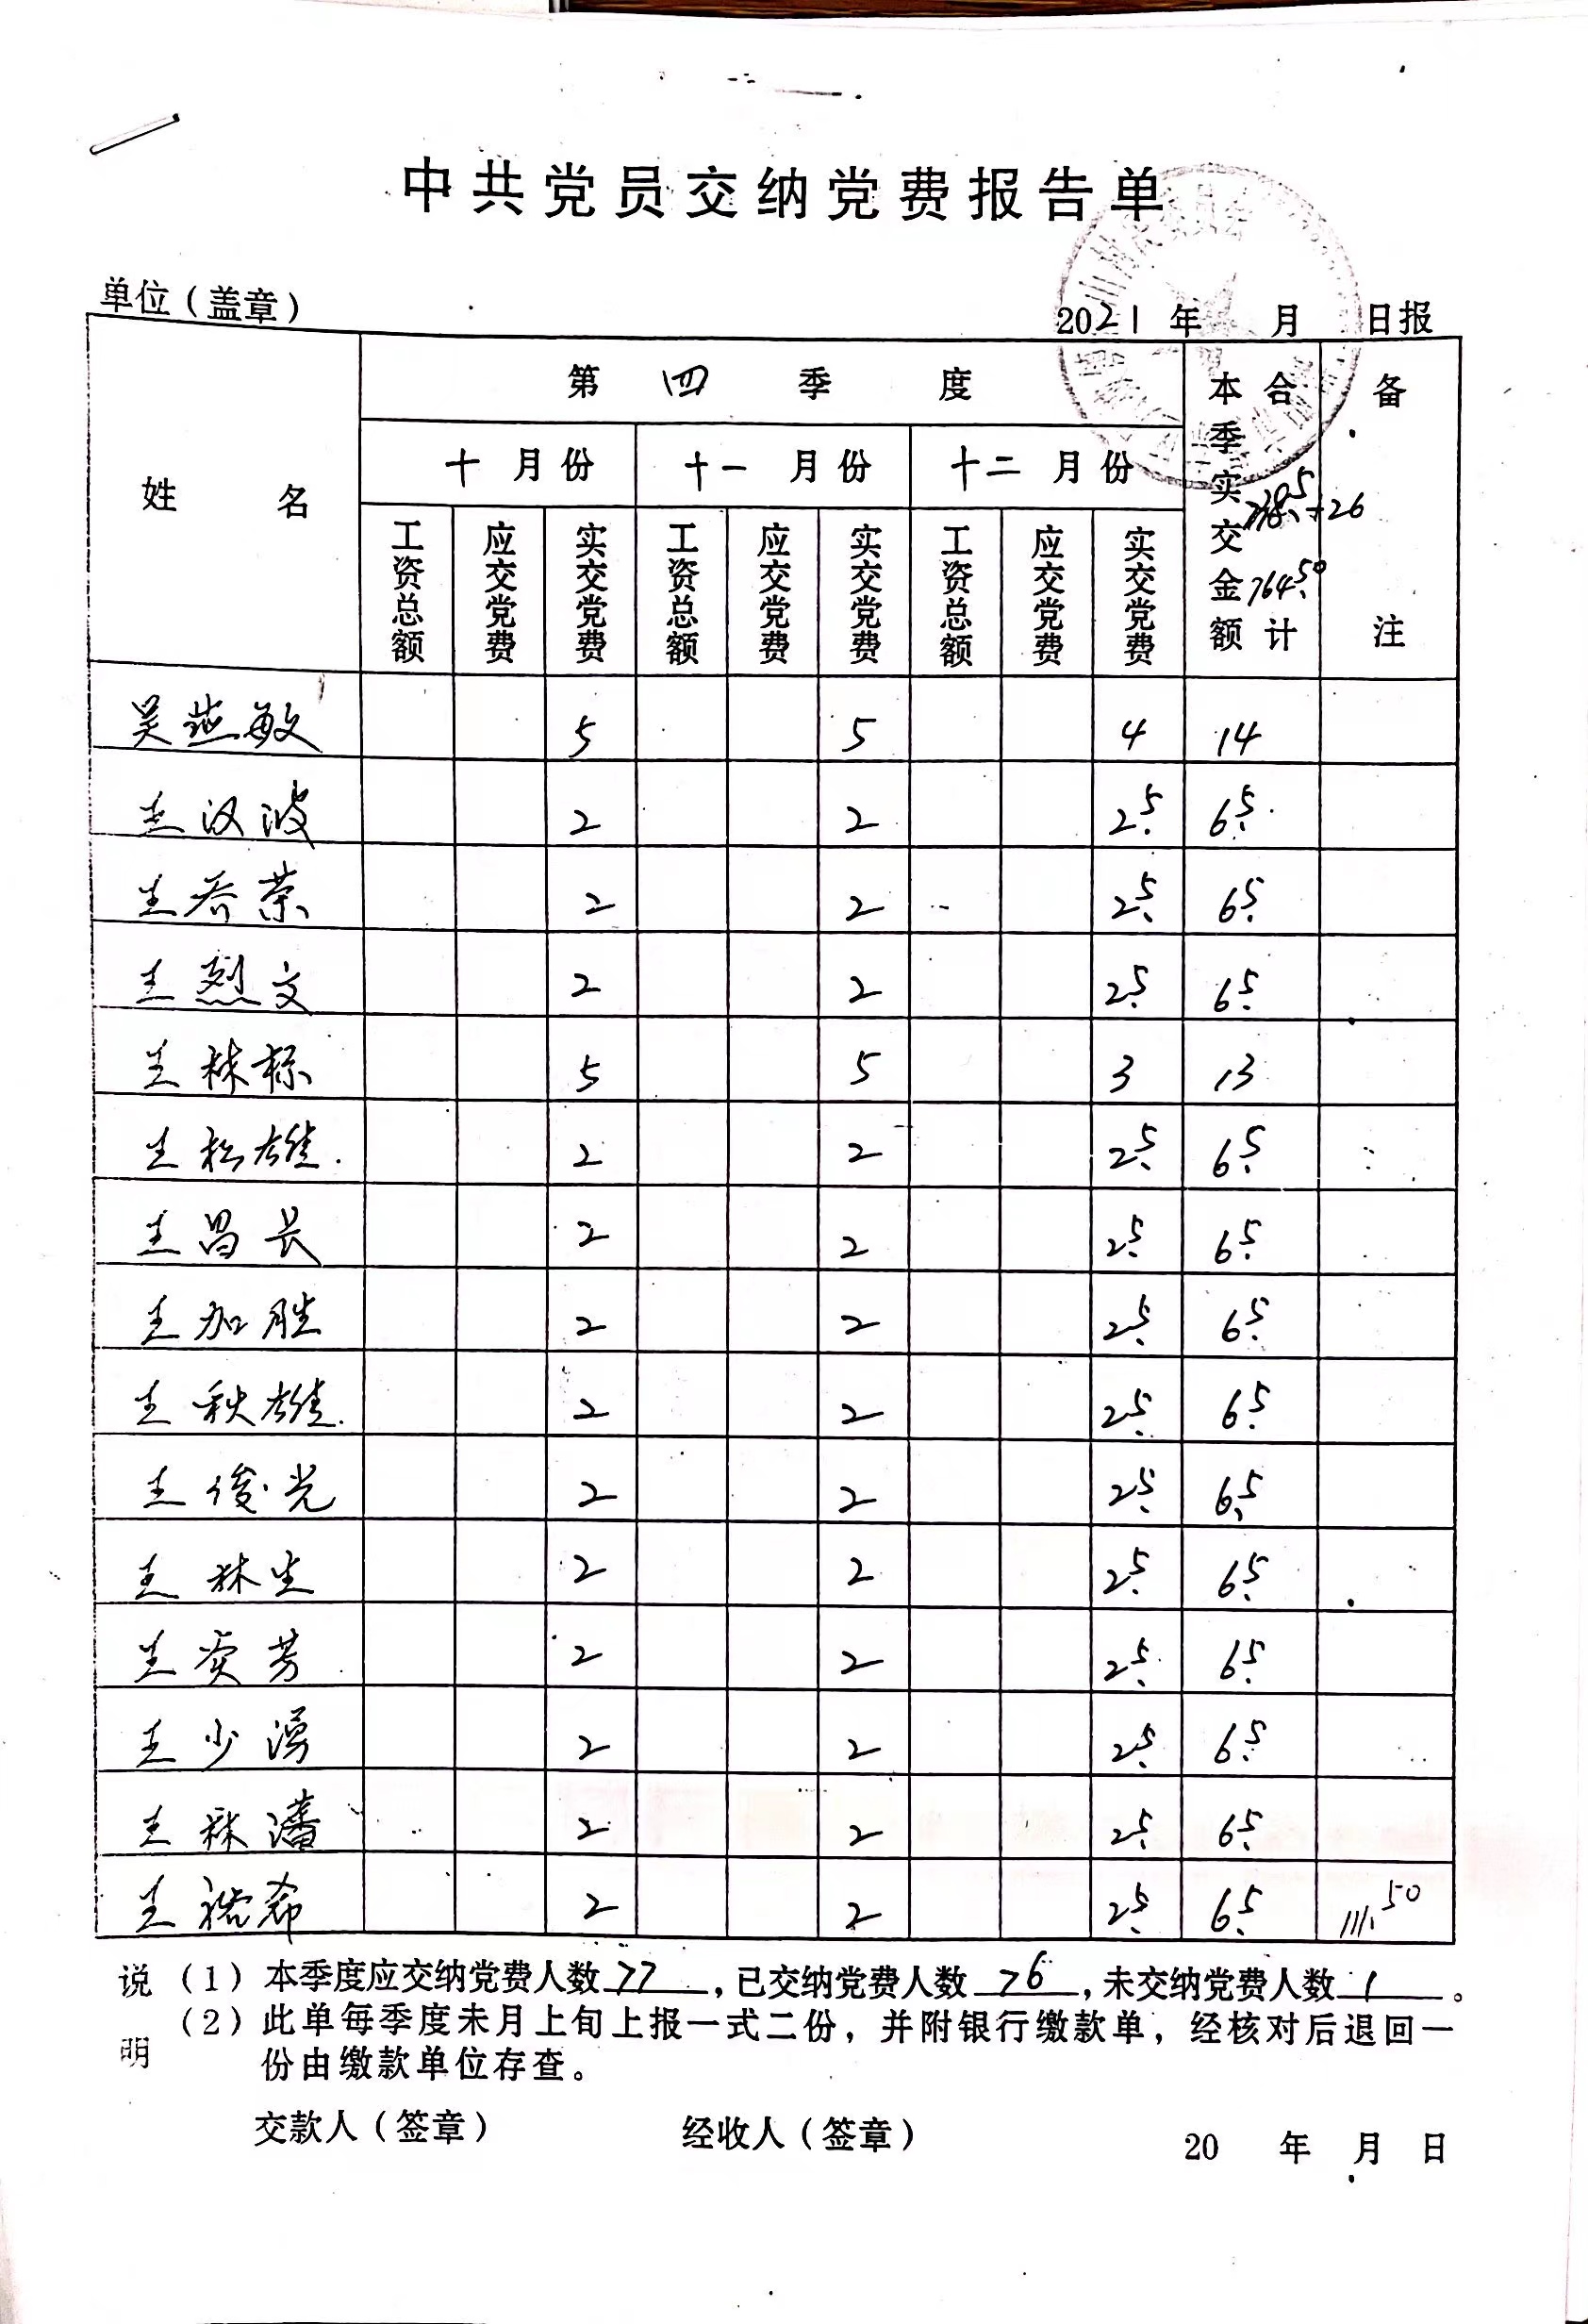 中共党员交纳党费报告单
单位（盖章）
2021 年 月 日报
姓 名
第 四 季 度
本季实交金额 合计
备 注
十 月 份 十一 月 份 十二 月 份
738.5+26
764.50
工资总额 应交党费 实交党费 工资总额 应交党费 实交党费 工资总额 应交党费 实交党费
吴燕敏 5 5 4 14
王汉波 2 2 2.5 6.5
王乔荣 2 2 2.5 6.5
王烈文 2 2 2.5 6.5
王林标 5 5 3 13
王松雄 2 2 2.5 6.5
王昌长 2 2 2.5 6.5
王加胜 2 2 2.5 6.5
王秋雄 2 2 2.5 6.5
王俊光 2 2 2.5 6.5
王林生 2 2 2.5 6.5
王奕芳 2 2 2.5 6.5
王少湧 2 2 2.5 6.5
王林藩 2 2 2.5 6.5
王裕希 2 2 2.5 6.5 111.50
说明
（1）本季度应交纳党费人数 77 ，已交纳党费人数 76 ，未交纳党费人数 1 。
（2）此单每季度末月上旬上报一式二份，并附银行缴款单，经核对后退回一
份由缴款单位存查。
交款人（签章） 经收人（签章） 20 年 月 日